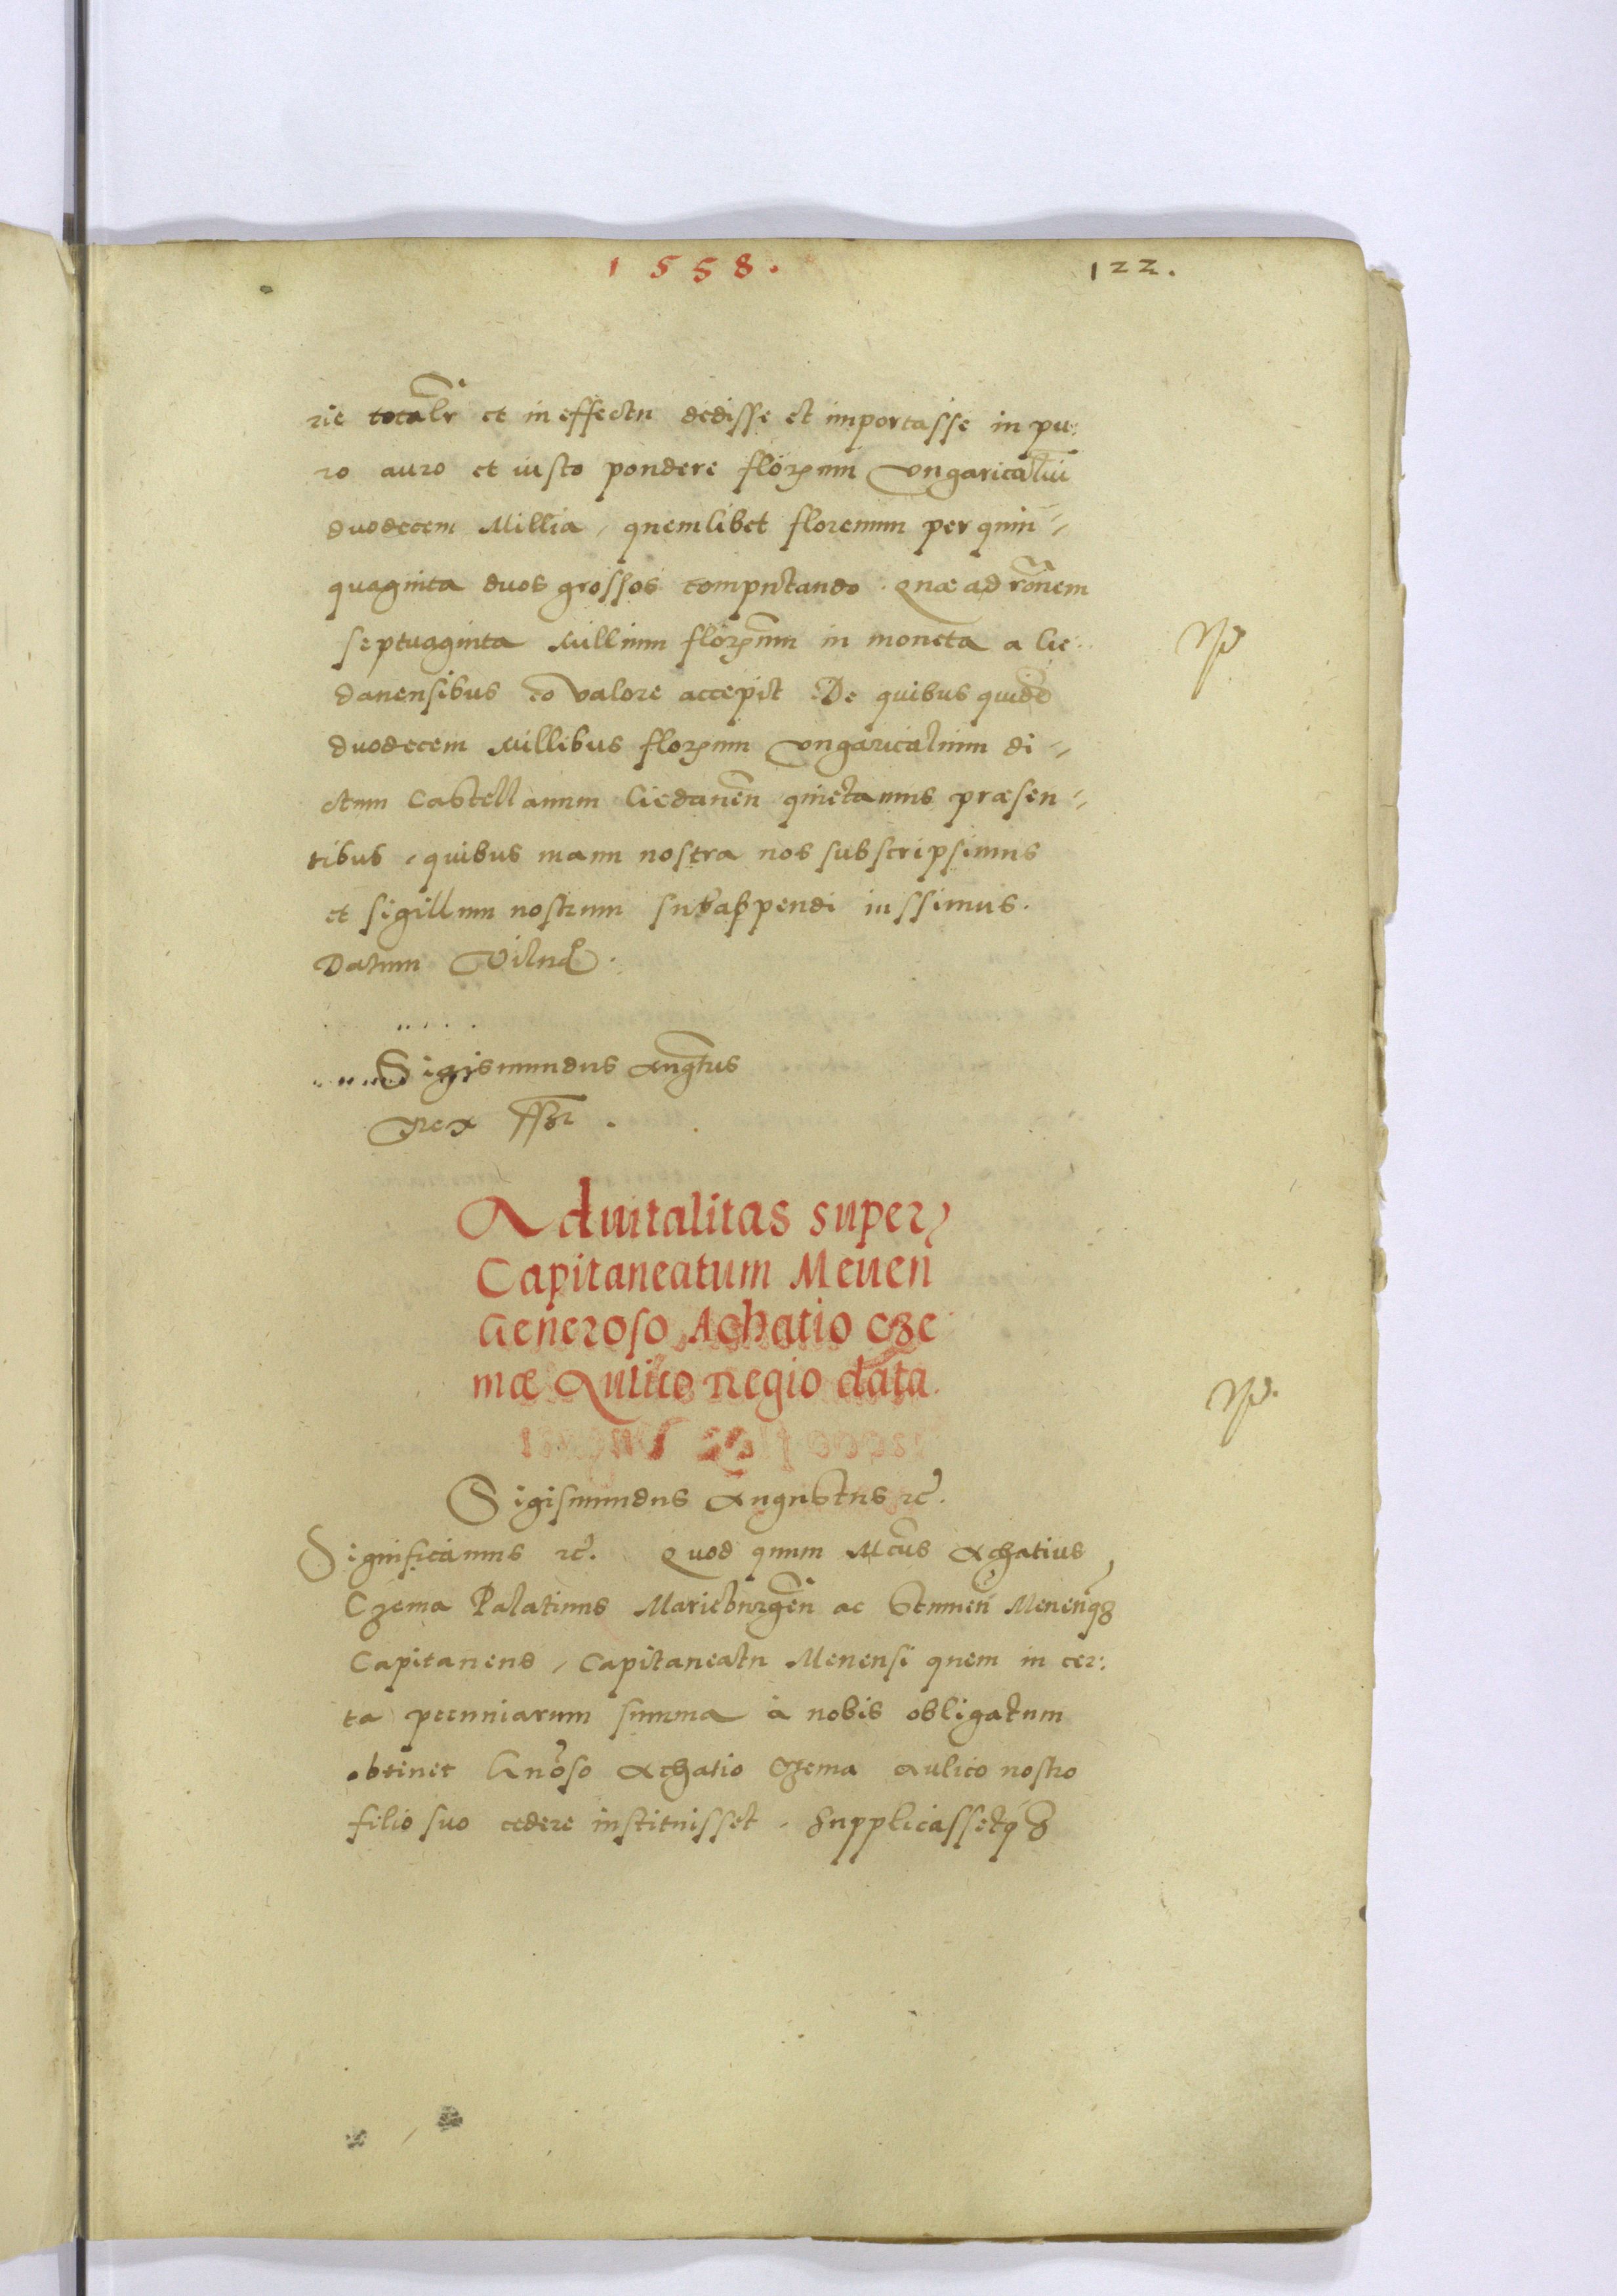 1558. 122.
rie totalr et in effectu dedisse et importasse in pu:
ro auro et iusto pondere florenum Vngaricaliũ
duodecem Millia, quemlibet florenum per quin=
quaginta duos grossos computando. Quæ ad rõnem
septuaginta Millium florenum in moneta a Ge:
danensibus eo valore accepit De quibus quidẽ
duodecem Millibus florenum Vngaricalium di=
ctum Castellanum Gedanen̄ quietamus præsen=
tibus, quibus manu nostra nos subscripsimus
et sigillum nostrum subappendi iussimus.
Datum Vilnæ.
Sigismundus Augtus
Rex ssr.
Aduitalitas super
Capitaneatum Meuen̄
Generoso Achatio Cze
mæ Aulico Regio data.
Sigismundus Augustus rc̃.
Significamus rc̃. Quod quum Mcus Achatius
Czema Palatinus Marieburgen̄ ac Stumen̄ Meuen̄q3
Capitaneus, Capitaneatu Meuensi quem in cer:
ta pecuniarum summa à nobis obligatum
obtinet Gnoso Achatio Czema Aulico nostro
filio suo cedere instituisset. Supplicassetq3